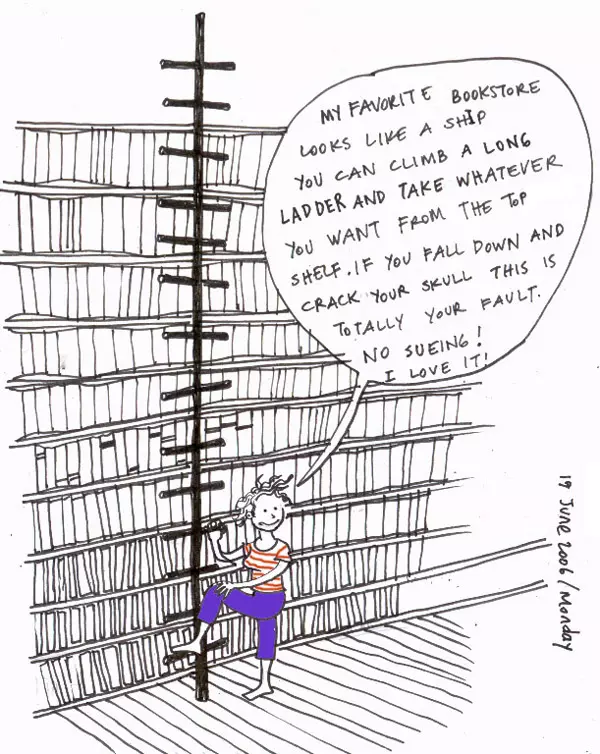 MY FAVORITE BOOKSTORE
LOOKS LIKE A SHIP
YOU CAN CLIMB A LONG
LADDER AND TAKE WHATEVER
YOU WANT FROM THE TOP
SHELF. IF YOU FALL DOWN AND
CRACK YOUR SKULL THIS IS
TOTALLY YOUR FAULT.
NO SUEING!
I LOVE IT!
19 June 2006/Monday